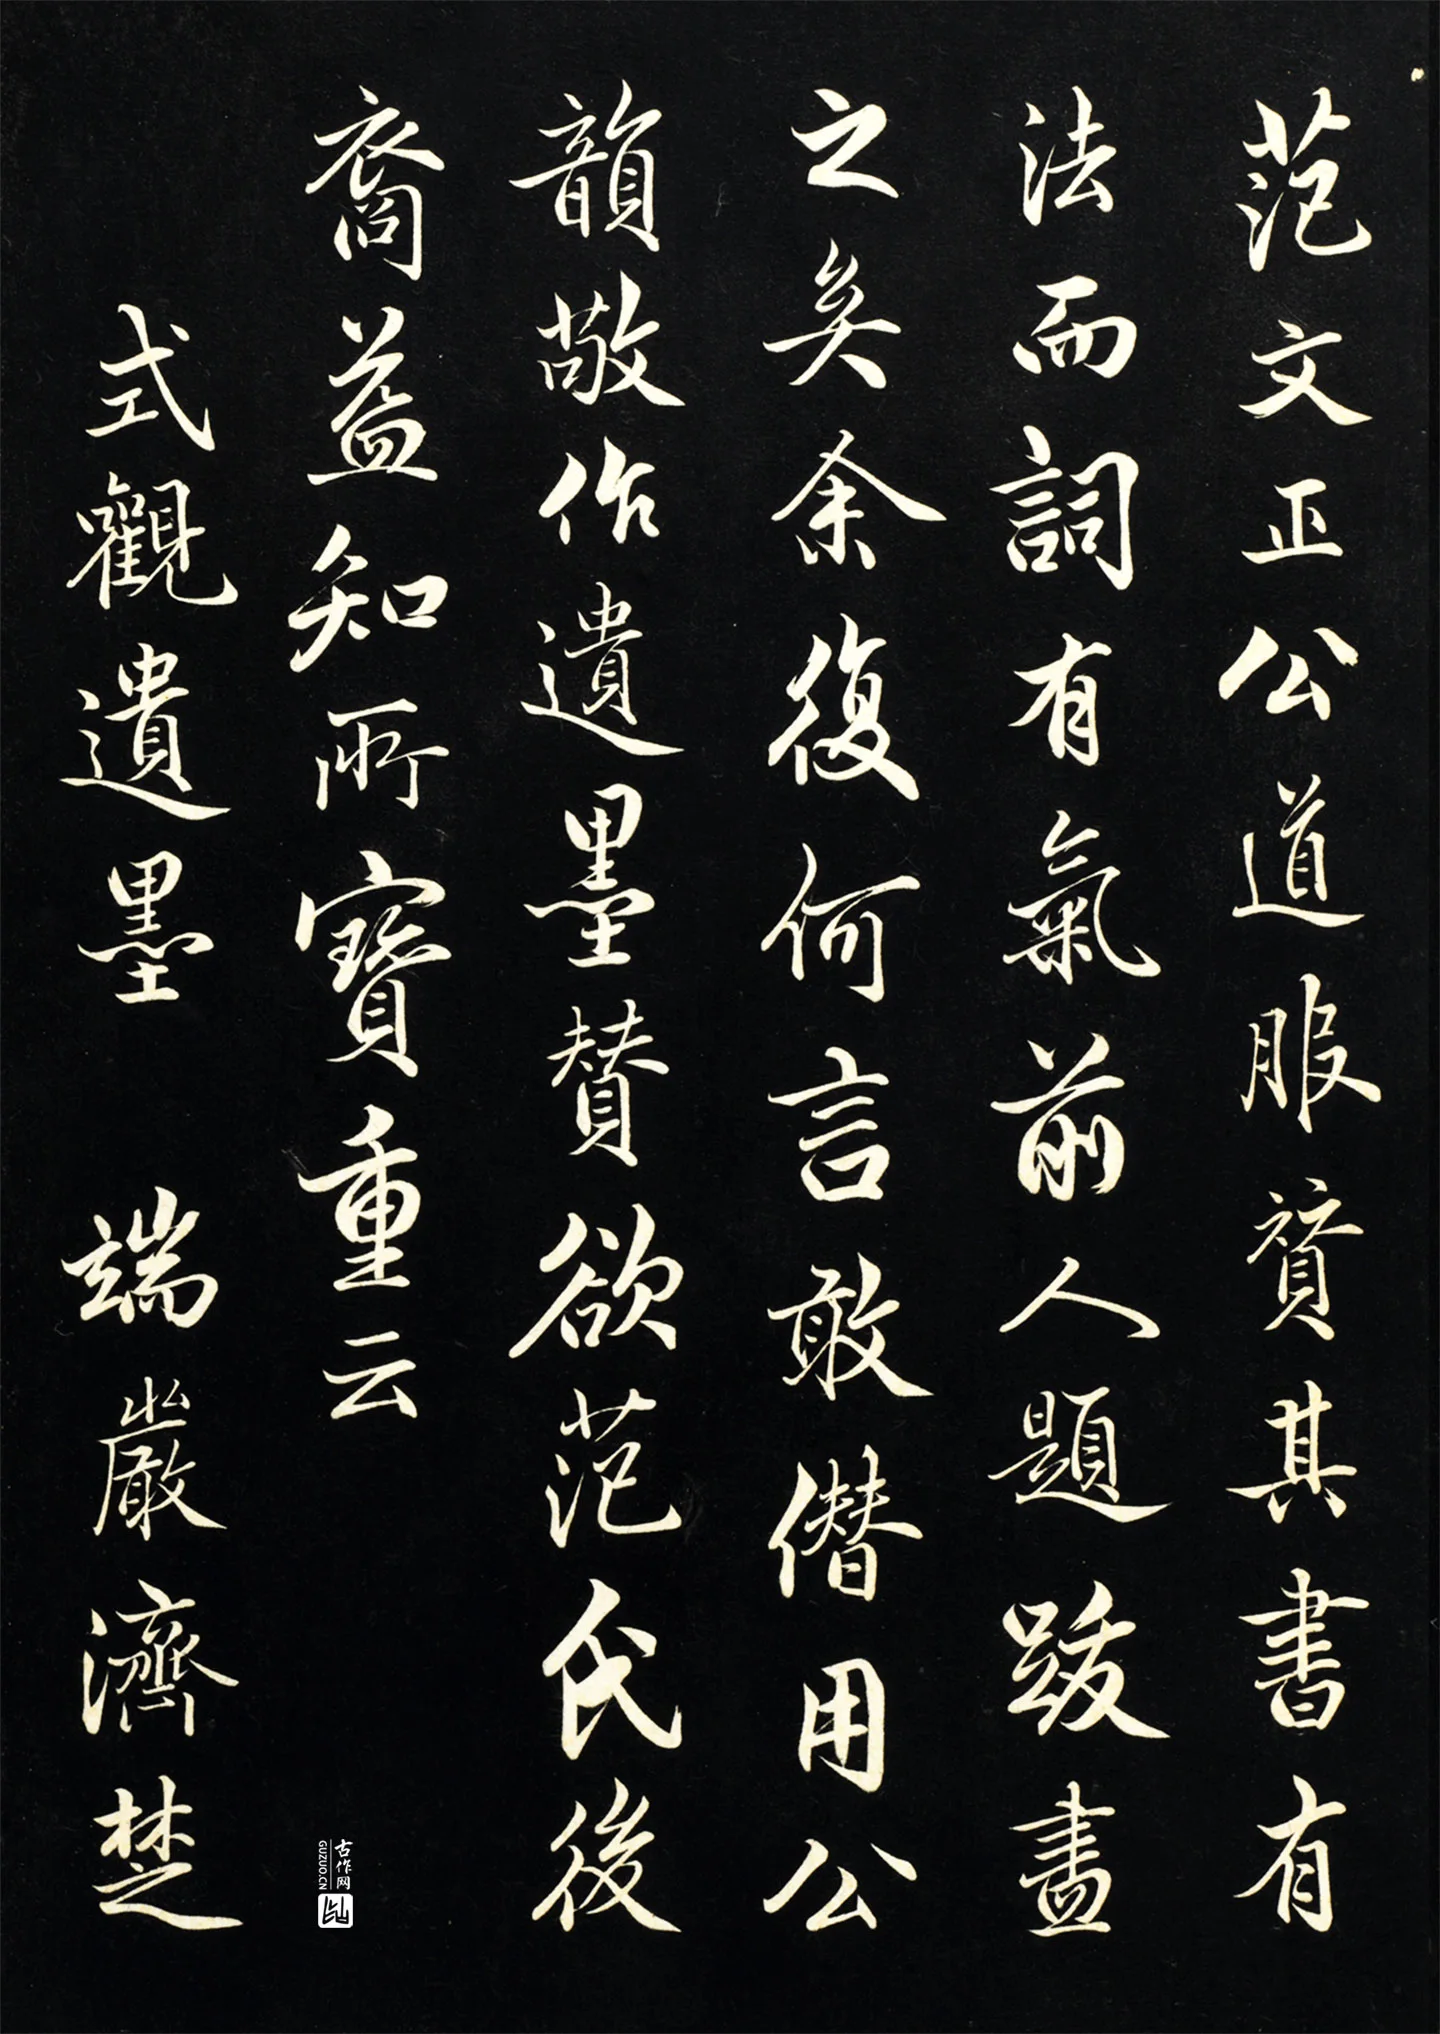 范文正公道服贊其書有
法而詞有氣前人題跋盡
之矣余復何言敢僭用公
韻敬作遺墨贊欲范氏後
裔益知所寶重云
式觀遺墨 端嚴濟楚
古作网
GUZUO.CN